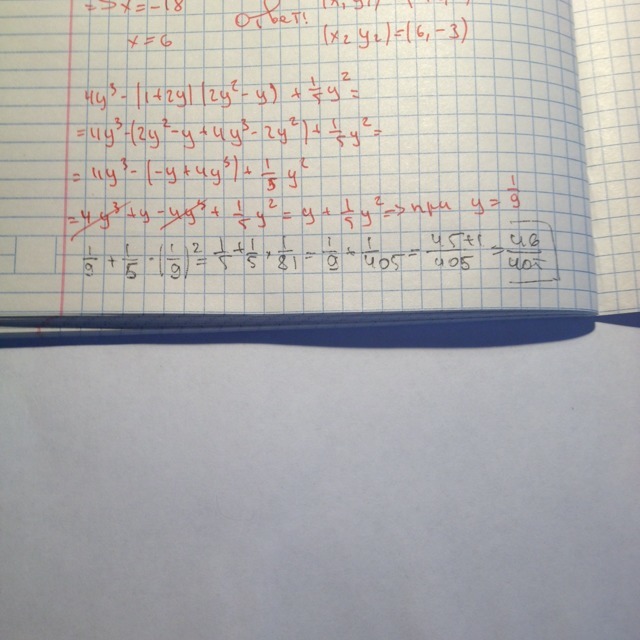 => x=-18
x=6 Ответ: (x₂ y₂)=(6,-3)
4y³-(1+2y)(2y²-y)+1/5y²=
=4y³-(2y²-y+4y³-2y²)+1/5y²=
=4y³-(-y+4y³)+1/5y²
=4y³+y-4y³+1/5y²=y+1/5y²=>при y=1/9
1/9+1/5·(1/9)²=1/9+1/5·1/81=1/9+1/405=45+1/405=46/405